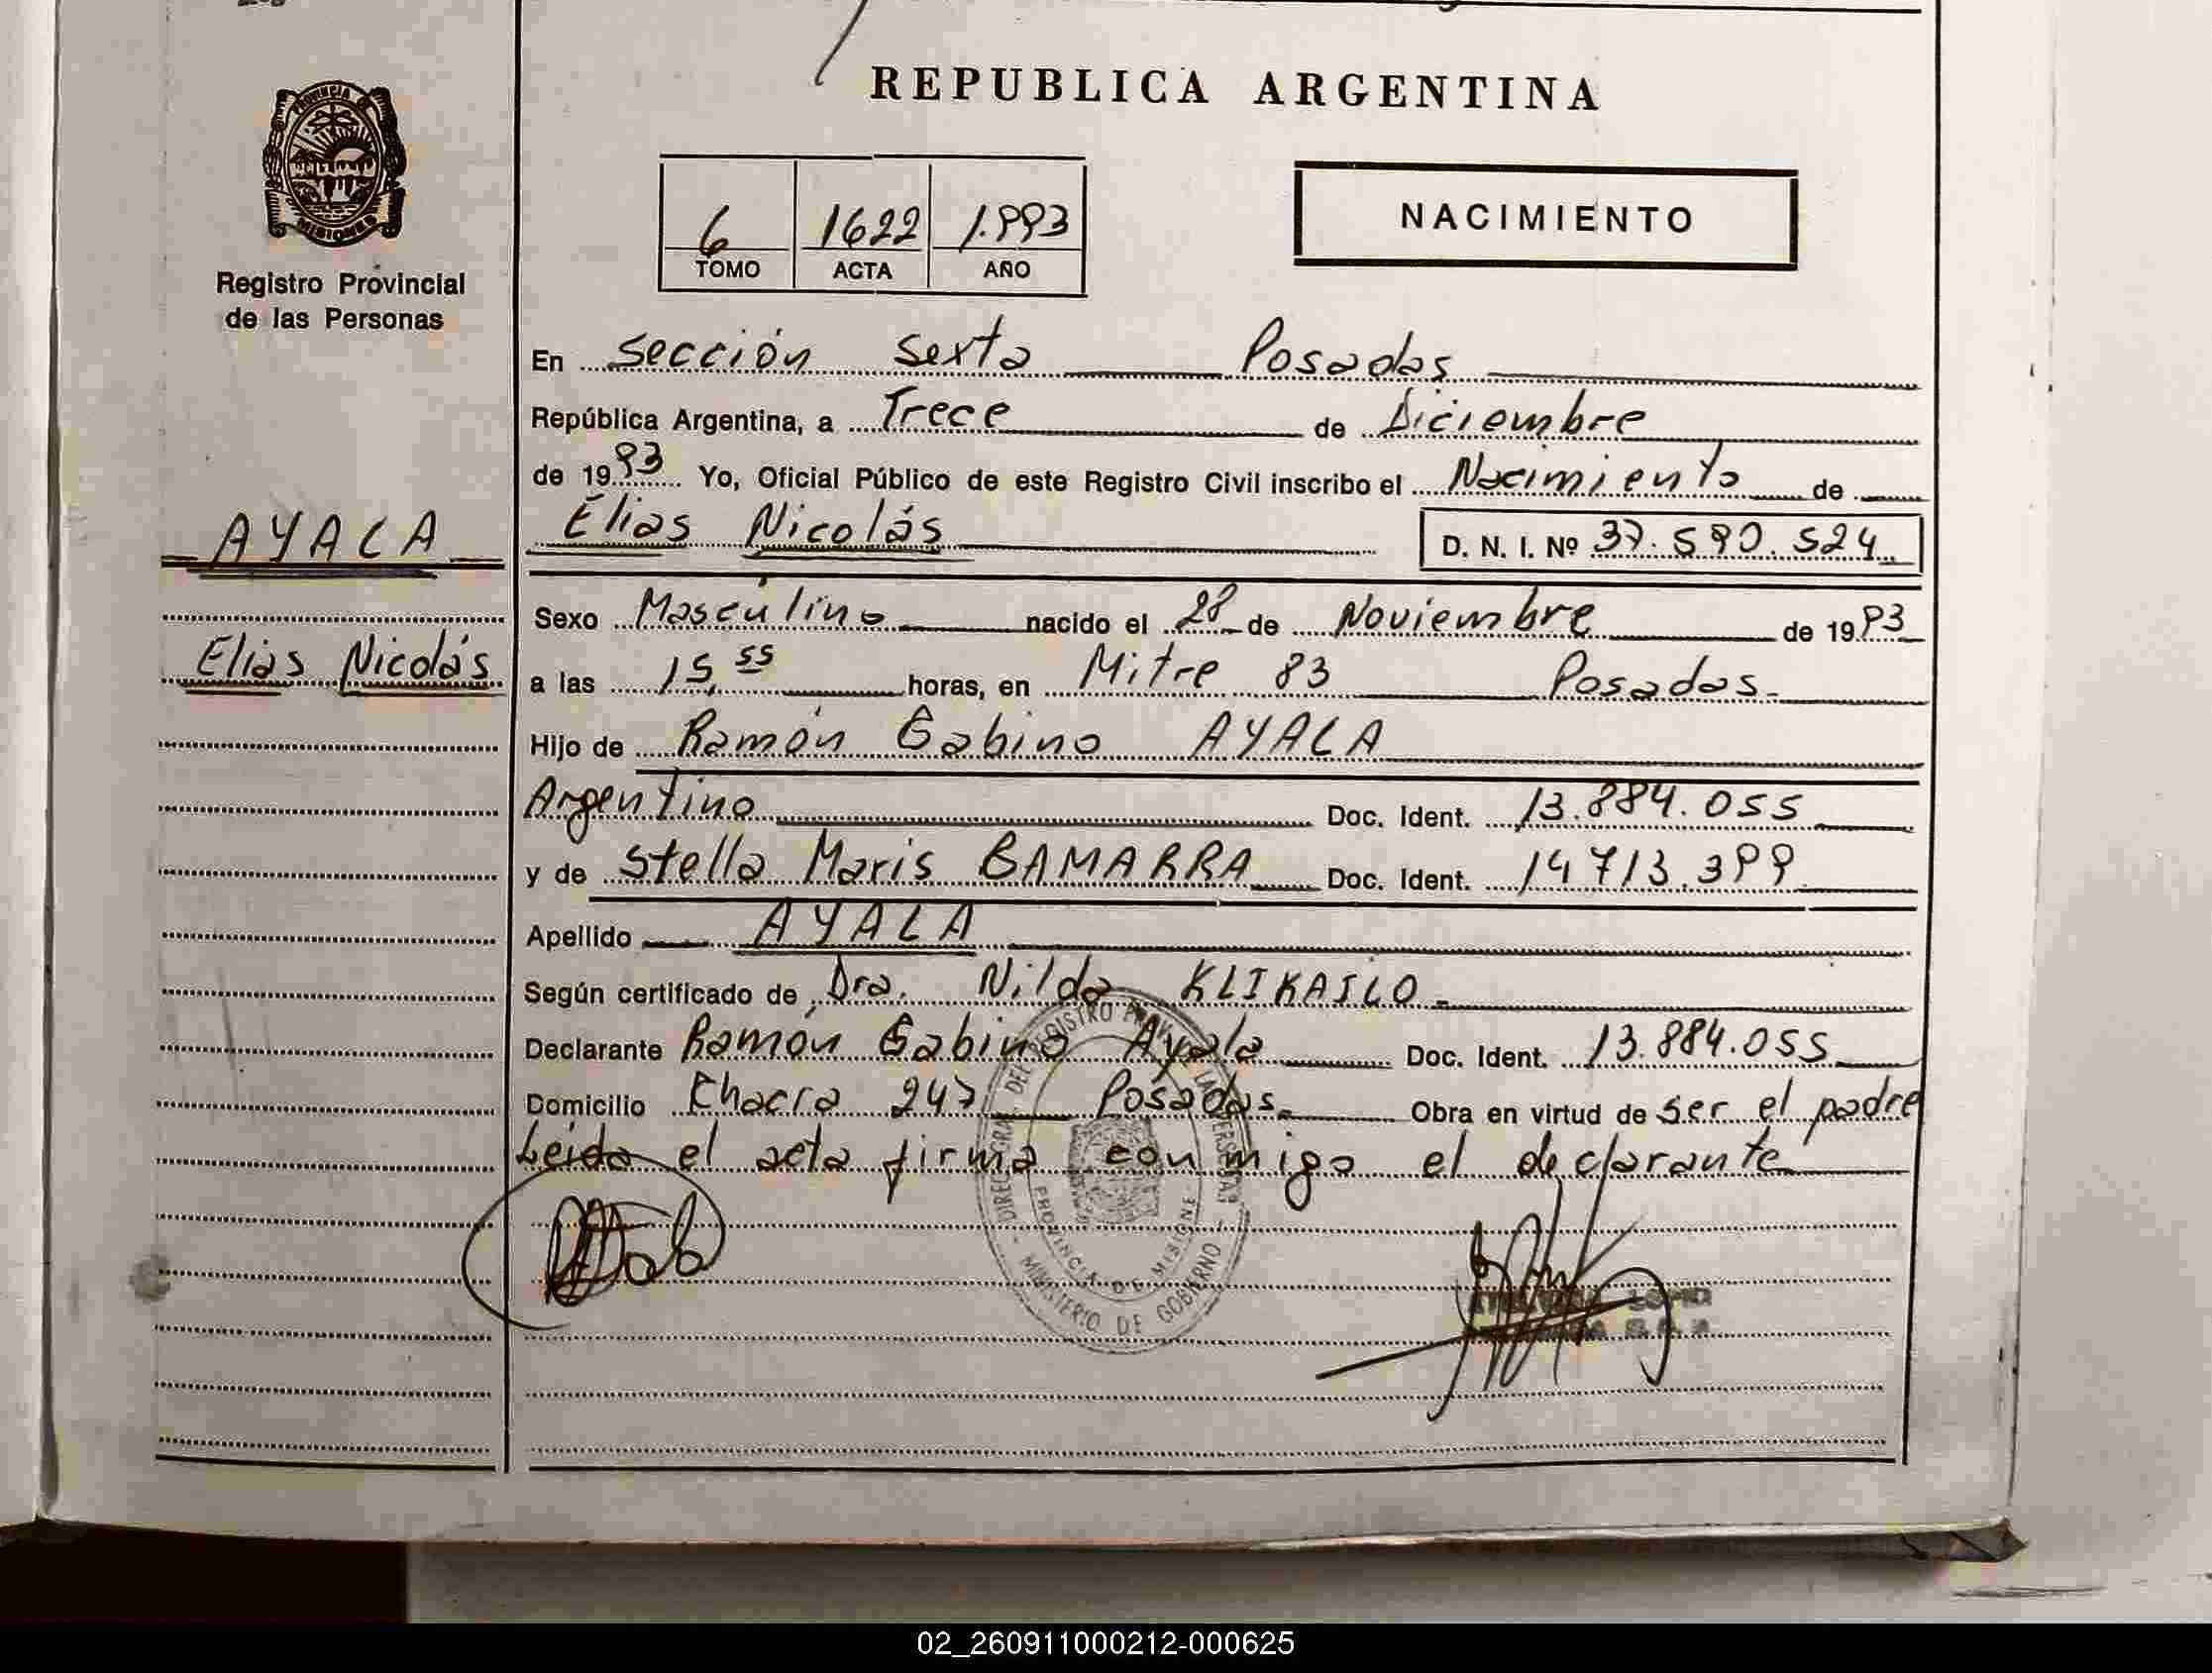 REPUBLICA ARGENTINA
PROVINCIA DE
MISIONES
Registro Provincial
de las Personas
6 1622 1.993
TOMO ACTA AÑO
NACIMIENTO
En Sección Sexta Posadas
República Argentina, a Trece de Diciembre
de 1993 Yo, Oficial Público de este Registro Civil inscribo el Nacimiento de
AYALA
Elias Nicolás D. N. I. Nº 37.590.524
Sexo Masculino nacido el 28 de Noviembre de 1993
Elias Nicolás
a las 15,55 horas, en Mitre 83 Posadas
Hijo de Ramón Gabino AYALA
Argentino Doc. Ident. 13.884.055
y de Stella Maris GAMARRA Doc. Ident. 14713.399
Apellido AYALA
Según certificado de Dra. Nilda
Declarante Ramón Gabino Ayala Doc. Ident. 13.884.055
Domicilio Chacra 247 Posadas Obra en virtud de ser el padre
Leida el acta firma conmigo el declarante
PROVINCIA DE MISIONES
MINISTERIO DE GOBIERNO
02_260911000212-000625